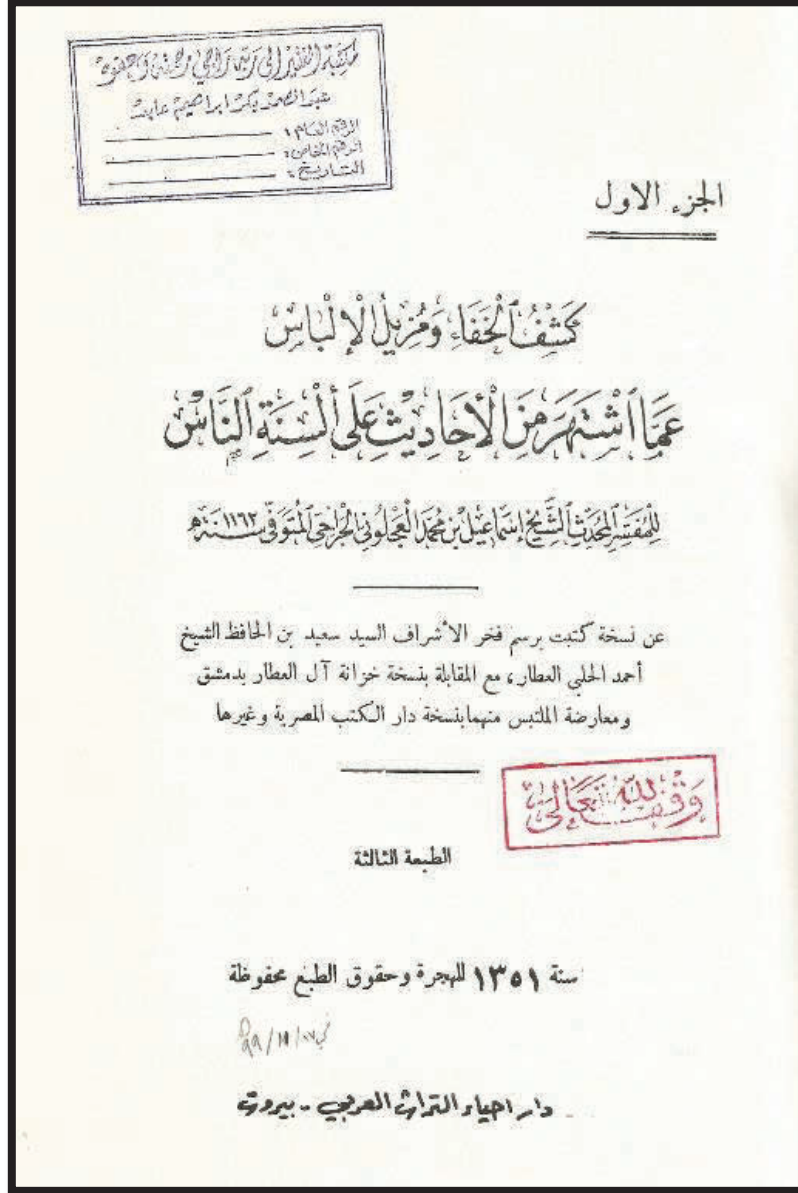 مكتبة الفقير إلى ربه راجي رحمته وعفوه
عبد الصمد بكر ابراهيم عابد
الرقم العام :
الرقم الخاص :
التاريخ :
الجزء الاول
كَشْفُ ٱلْخَفَاءِ وَمُزِيلُ ٱلْإِلْبَاسِ
عَمَّا ٱشْتَهَرَ مِنَ ٱلْأَحَادِيثِ عَلَى أَلْسِنَةِ ٱلنَّاسِ
للمفسر المحدث الشيخ إسماعيل بن محمد العجلوني الجراحي المتوفى سنة ١١٦٢ ه
عن نسخة كتبت برسم فخر الأشراف السيد سعيد بن الحافظ الشيخ
أحمد الحلبي العطار، مع المقابلة بنسخة خزانة آل العطار بدمشق
ومعارضة الملتبس منهما بنسخة دار الكتب المصرية وغيرها
وَقْف لله تَعَالَى
الطبعة الثالثة
سنة ١٣٥١ للهجرة وحقوق الطبع محفوظة
دار احياء التراث العربي - بيروت